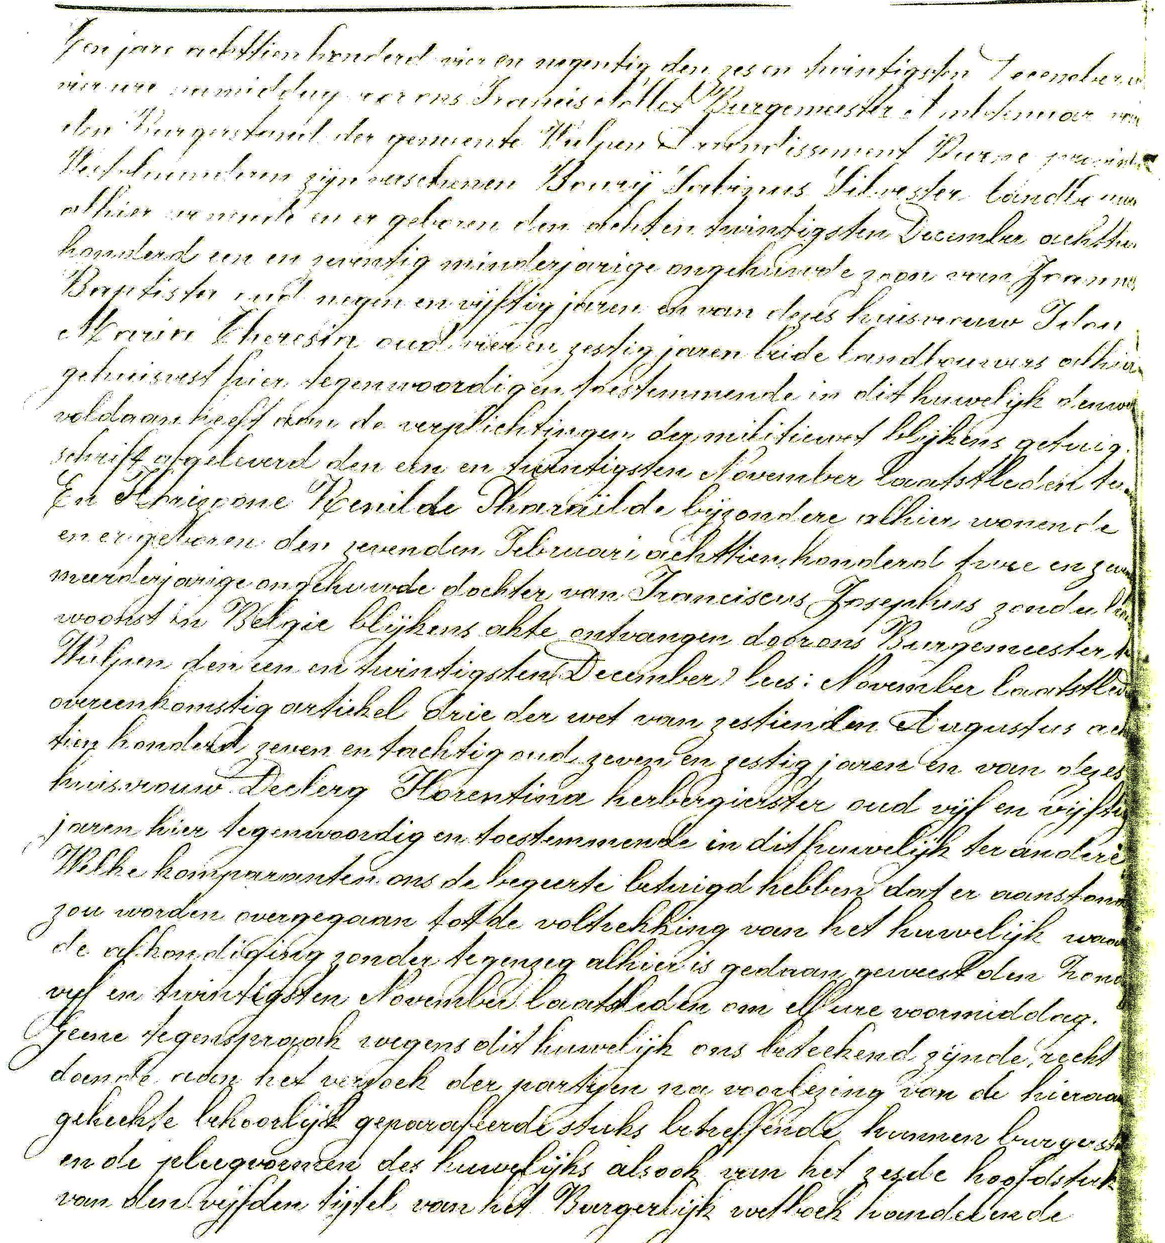 Ten jare achttien honderd vier en negentig den zes en twintigsten December
vier ure namiddag voor ons Francis Collet Burgemeester Ambtenaar van
den Burgerstand der gemeente Wulpen Arrondissement Veurne provin
Westvlaanderen zijn verschenen Boury Sabinus Silvester landb
alhier wonende en er geboren den acht en twintigsten December achttien
honderd een en zeventig minderjarige ongehuwde zoon van Joannes
Baptista oud negen en vijftig jaren en van dezes huisvrouw
Maria Theresia oud vier en zestig jaren beide landbouwers alhier
gehuisvest hier tegenwoordig en toestemmende in dit huwelijk denwe
voldaan heeft aan de verplichtingen der militiewet blijkens getuig
schrift afgeleverd den een en twintigsten November laatstleden te
En Florizoone Renilde Pharaïlde bijzondere alhier wonende
en er geboren den zevenden Februari achttien honderd twee en zeve
meerderjarige ongehuwde dochter van Franciscus Josephus zonder
woonst in Belgie blijkens akte ontvangen door ons Burgemeester
Wulpen den een en twintigsten (December) lees: November laatstled
overeenkomstig artikel drie der wet van zestienden Augustus ach
tien honderd zeven en tachtig oud zeven en zestig jaren en van dezes
huisvrouw Declerq Florentina herbergierster oud vijf en vijftig
jaren hier tegenwoordig en toestemmende in dit huwelijk ter andere
Welke komparanten ons de begeerte betuigd hebben dat er aanston
zou worden overgegaan tot de voltrekking van het huwelijk waar
de afkondiging zonder tegenzeg alhier is gedaan geweest den Zond
vijf en twintigsten November laatstleden om elf ure voormiddag.
Geene tegenspraak wegens dit huwelijk ons beteekend zijnde, recht
doende aan het verzoek der partijen na voorlezing van de hieraan
gehechte behoorlijk geparafeerde stuks betreffende hunnen burgerst
en de pleegvormen des huwelijks alsook van het zesde hoofdstuk
van den vijfden tijtel van het Burgerlijk wetboek handelende